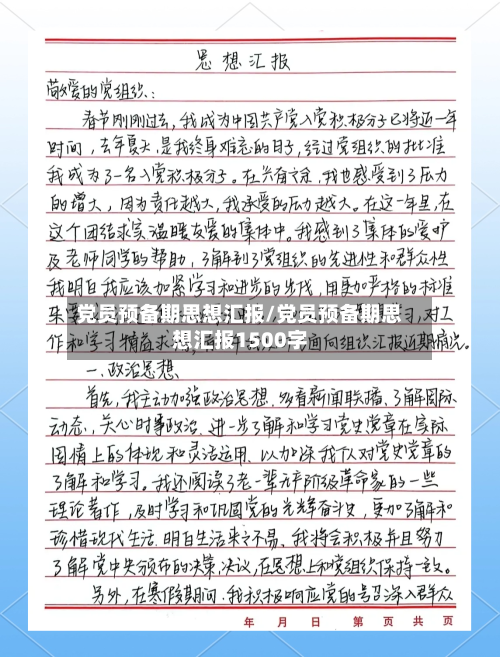 思想汇报
敬爱的党组织:
春节刚刚过去,我成为中国共产党入党积极分子已将近一年
时间,去年夏天,是我终身难忘的日子,经过党组织的批准
我成为了一名入党积极分子。在兴奋之余,我也感受到了压力
的增大,因为责任越大,我承受的压力越大。在这一年里,在
这个团结求实温暖友爱的集体中。我感到了集体的爱护
及老师同学的帮助,了解到了党组织的先进性和群众性
我明白我应该加紧学习和进步的步伐,用更严格的标准
来 习,对工
党员预备期思想汇报/党员预备期思
想汇报1500字
作和学习精益求 面向组织汇报近期情况。
一、政治思想
首先,我主动加强政治思想,多看新闻联播、了解国际
动态,关心时事政治,进一步了解和学习党史党章在实际
国情上的体现和灵活运用,以加深我个人对党史党章的
了解和学习。我还阅读了老一辈无产阶级革命家的一些
理论著作,及时学习和巩固党的光辉奋斗史,更加了解和
珍惜现代生活,明白生活来之不易、我将会积极并且努力
了解党中央颁布的决策、决议,在思想上和党组织保持一致。
另外,在寒假期间,我积极响应党的号召深入群众
年 月 日 第 页 共 页